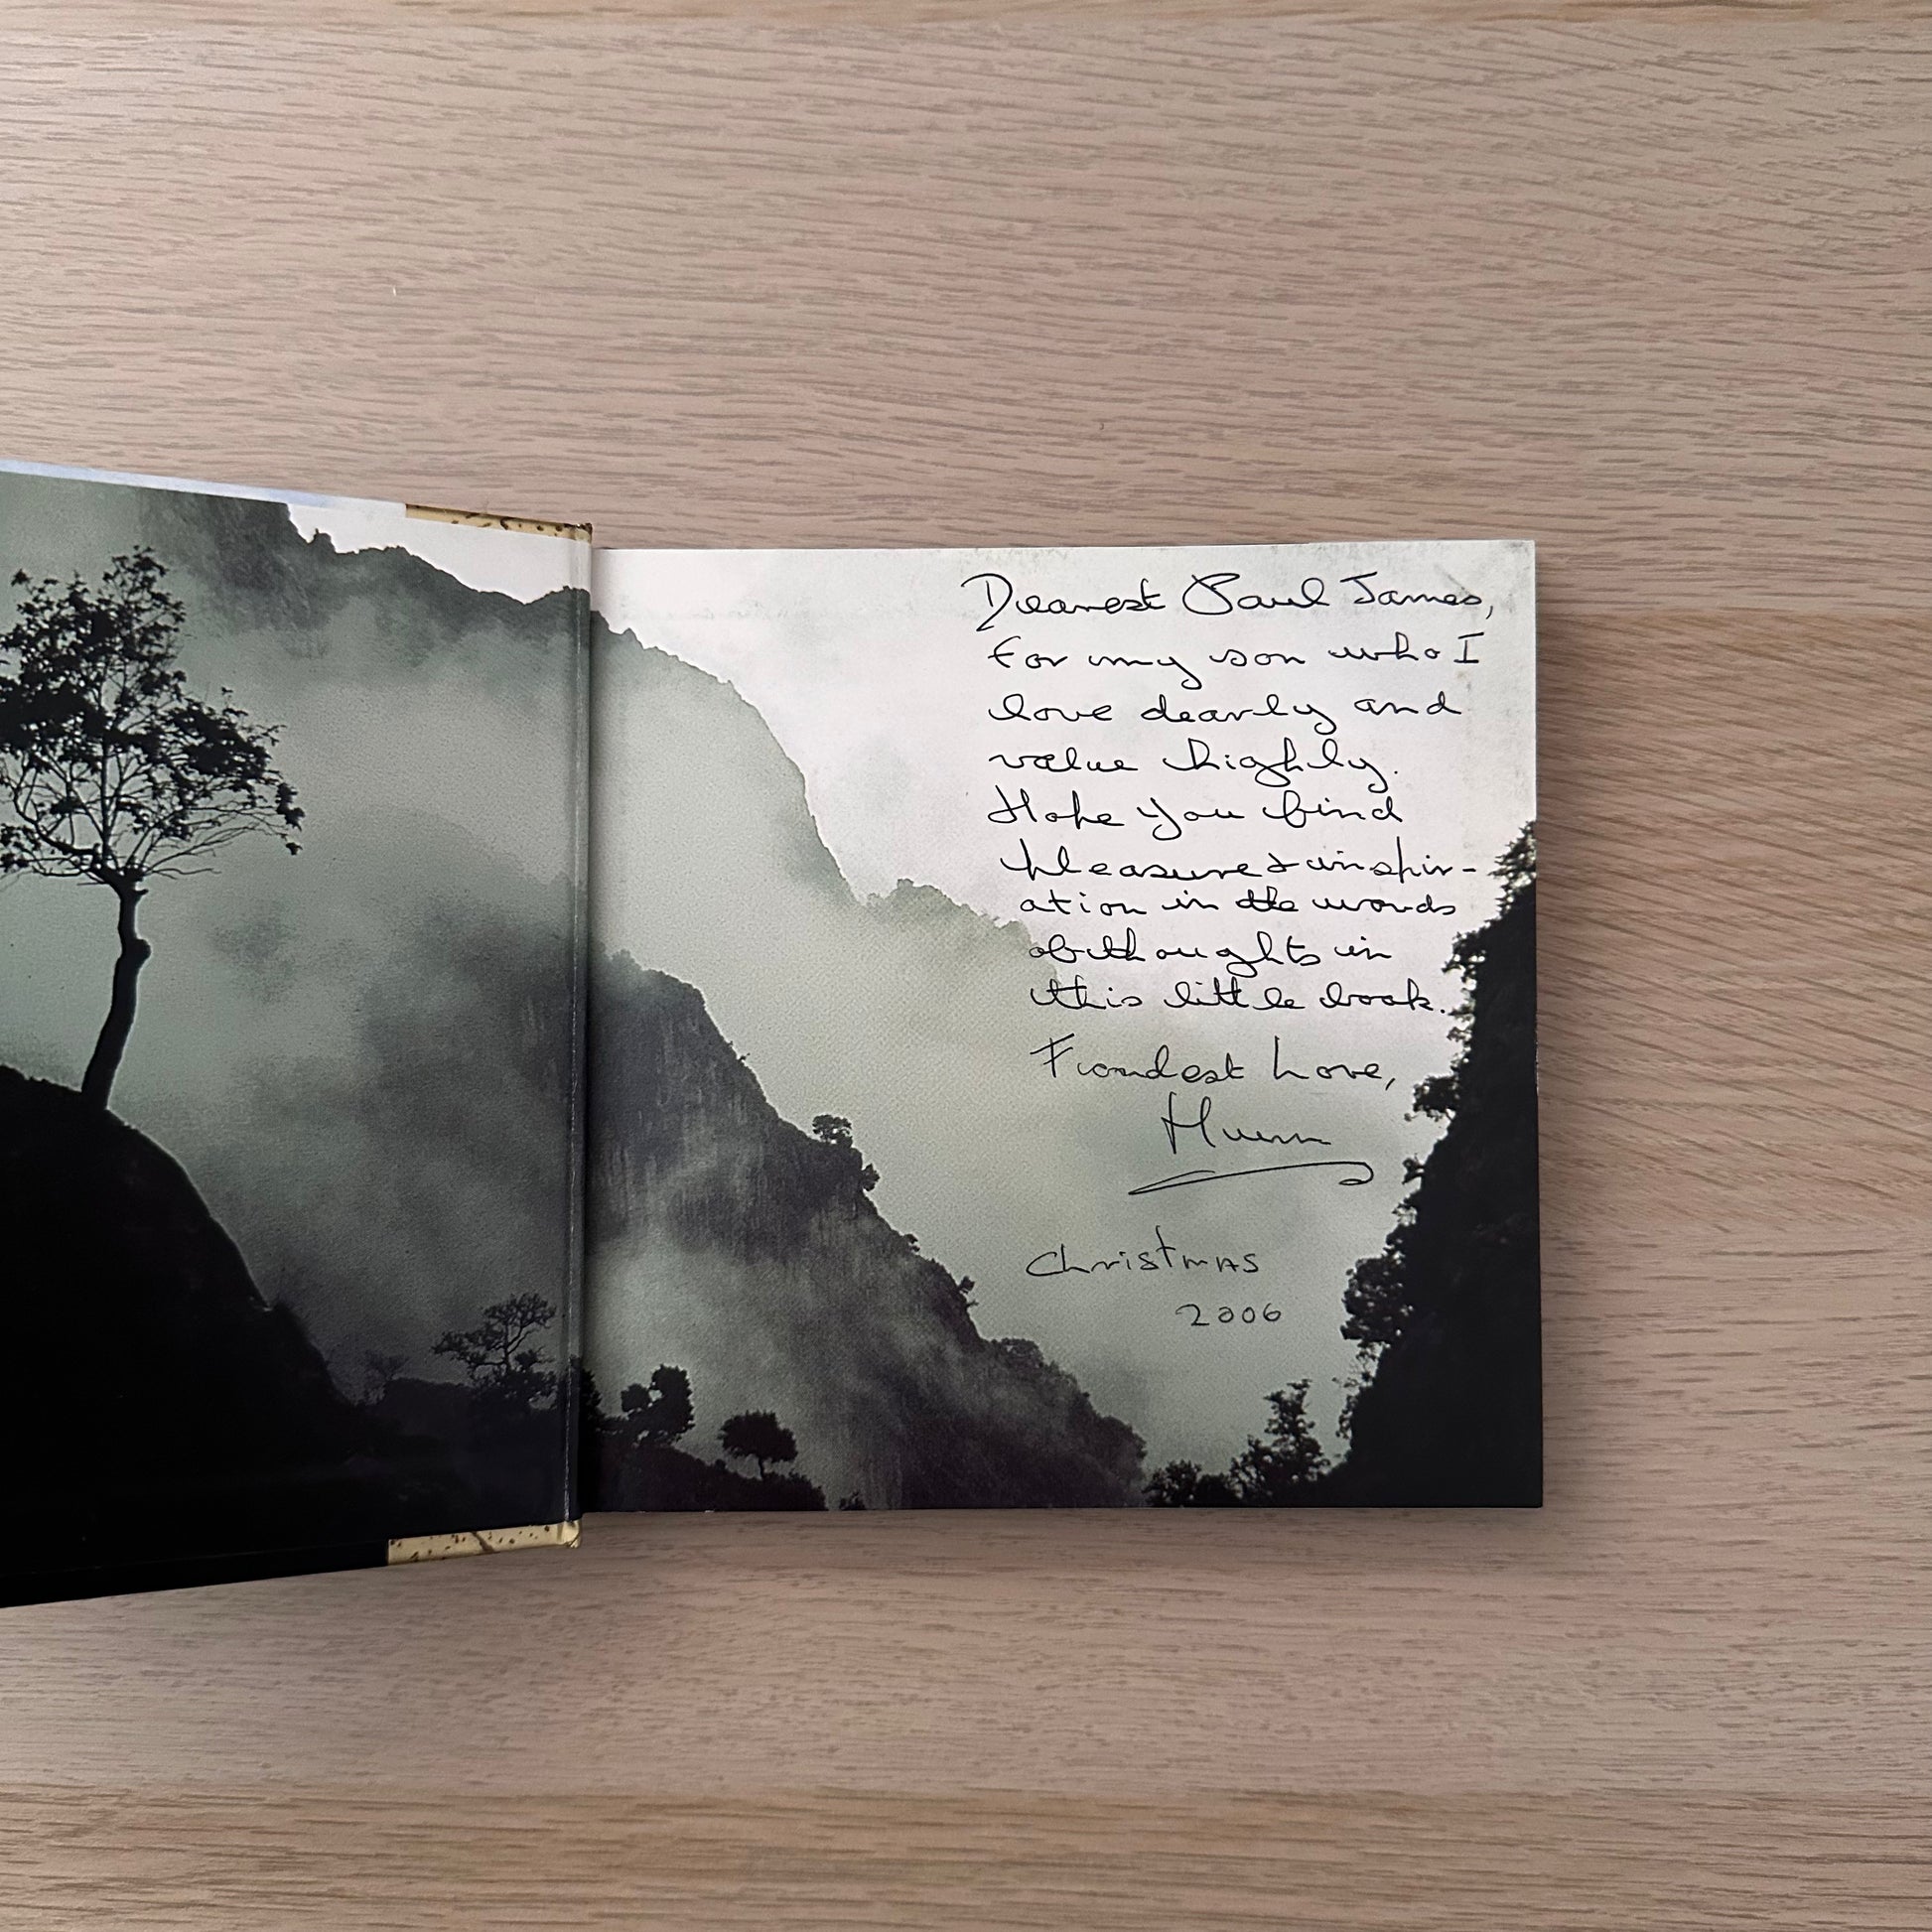 Dearest Paul James,
For my son who I
love dearly and
value highly.
Hope you find
pleasure & inspir-
ation in the words
of thoughts in
this little book.
Fondest Love,
Christmas
2006